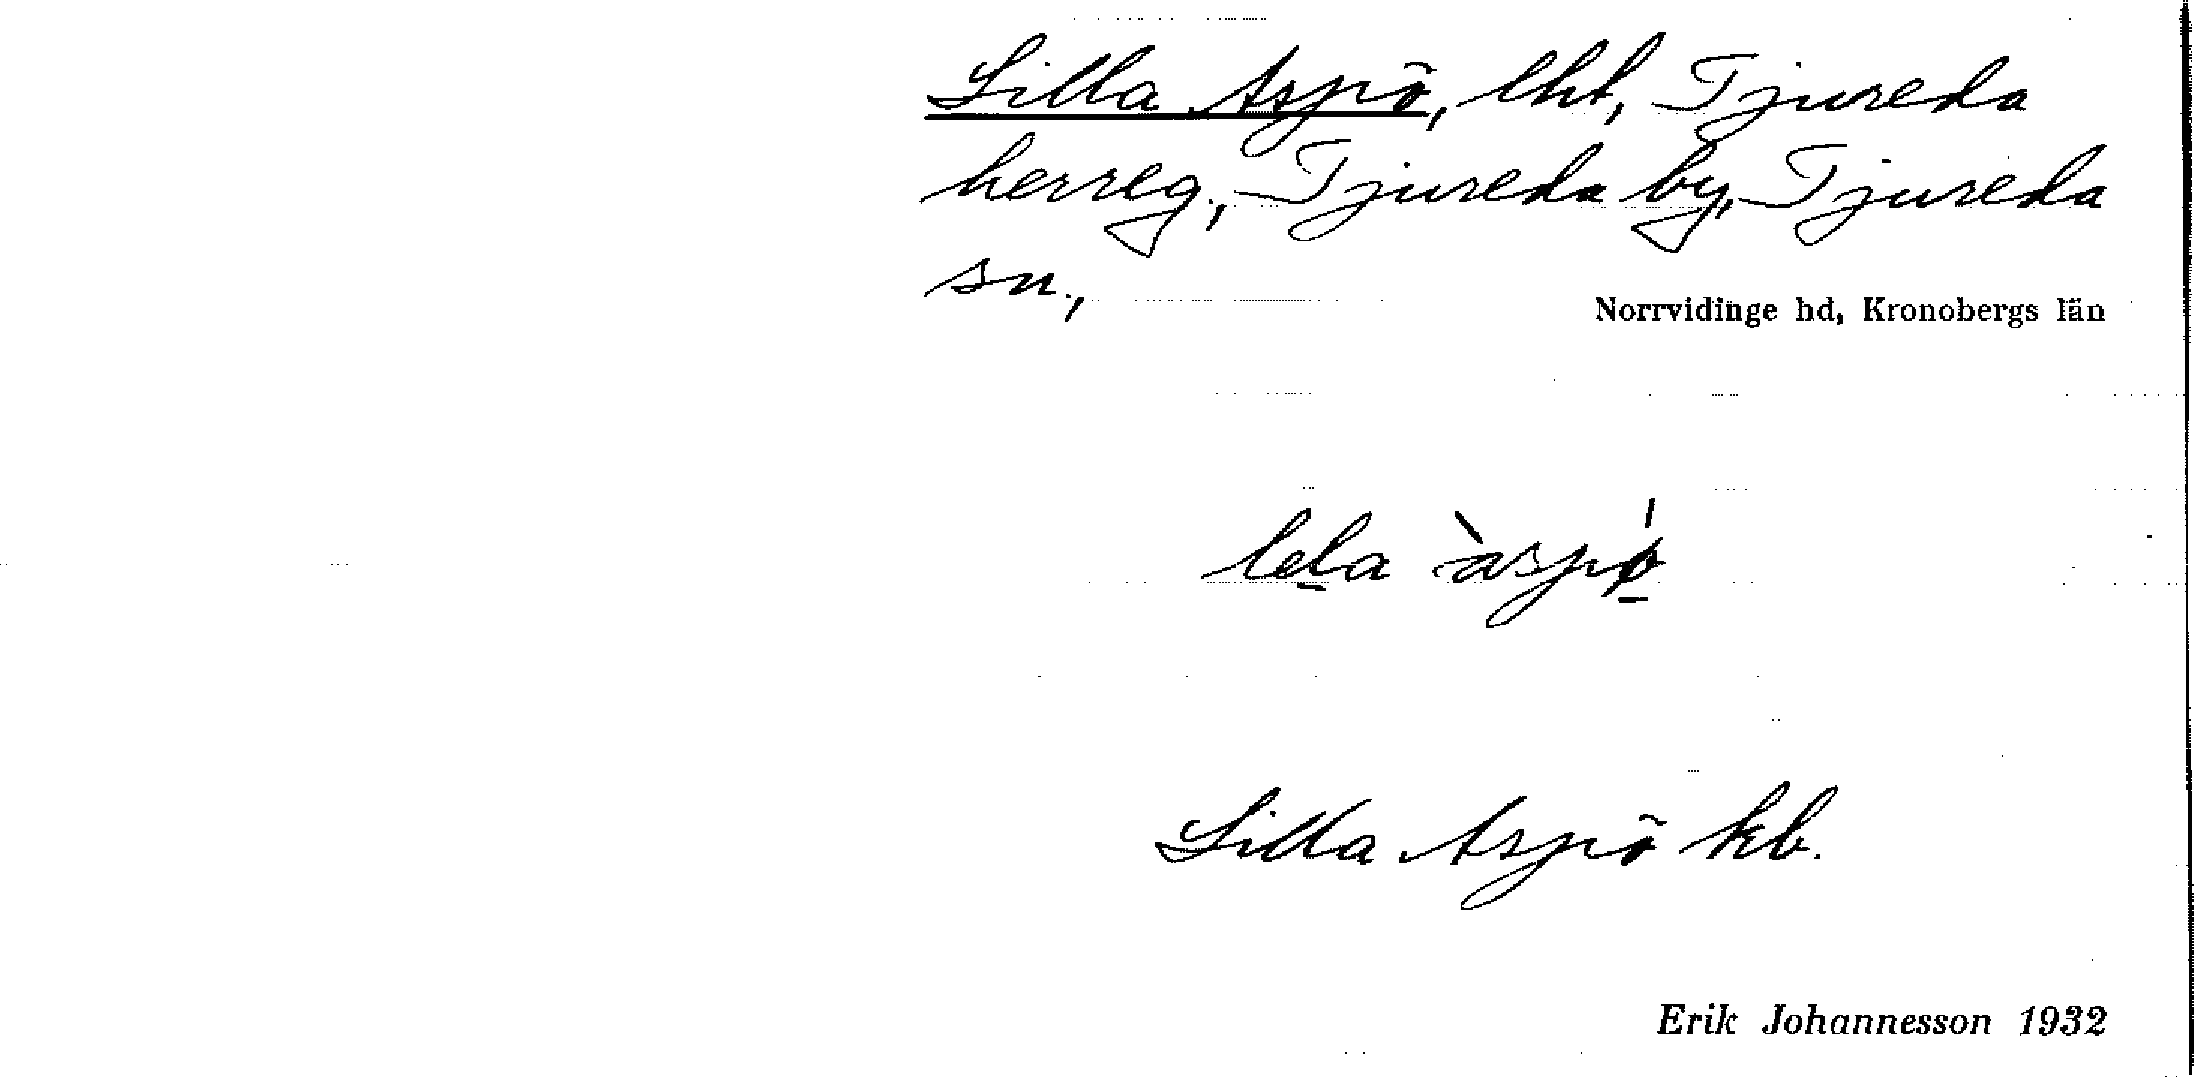 Lilla Aspö, lht, Tjureda
herreg., Tjureda by, Tjureda
sn.,
Norrvidinge hd, Kronobergs län
lela àspǿ̱
Lilla Aspö kb.
Erik Johannesson 1932